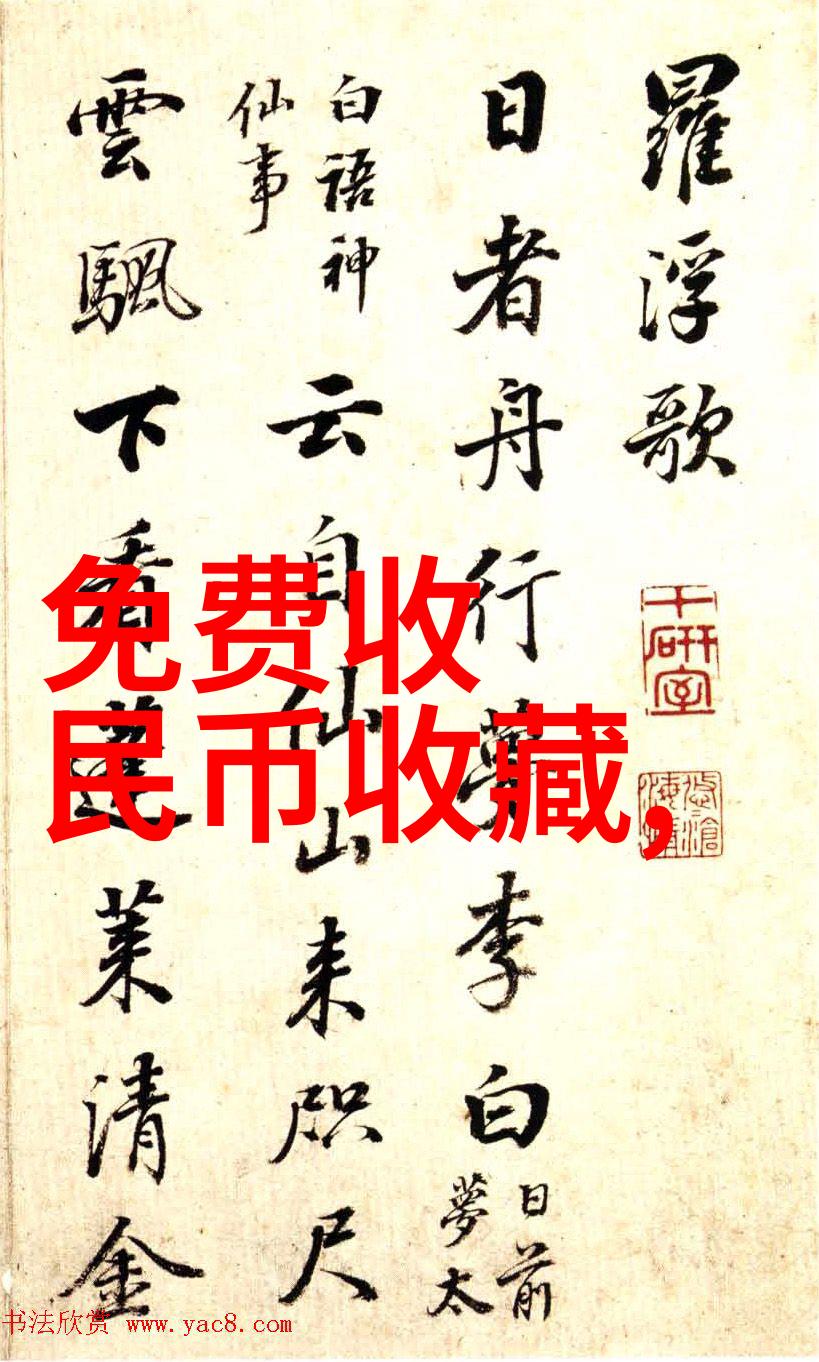 羅浮歌
千研室
日者舟行夢李白
日前
夢太
白語神
仙事
云自仙山来咫尺
雲颿下看蓬莱清金
免费收
民币收藏,
书法欣赏 www.yac8.com